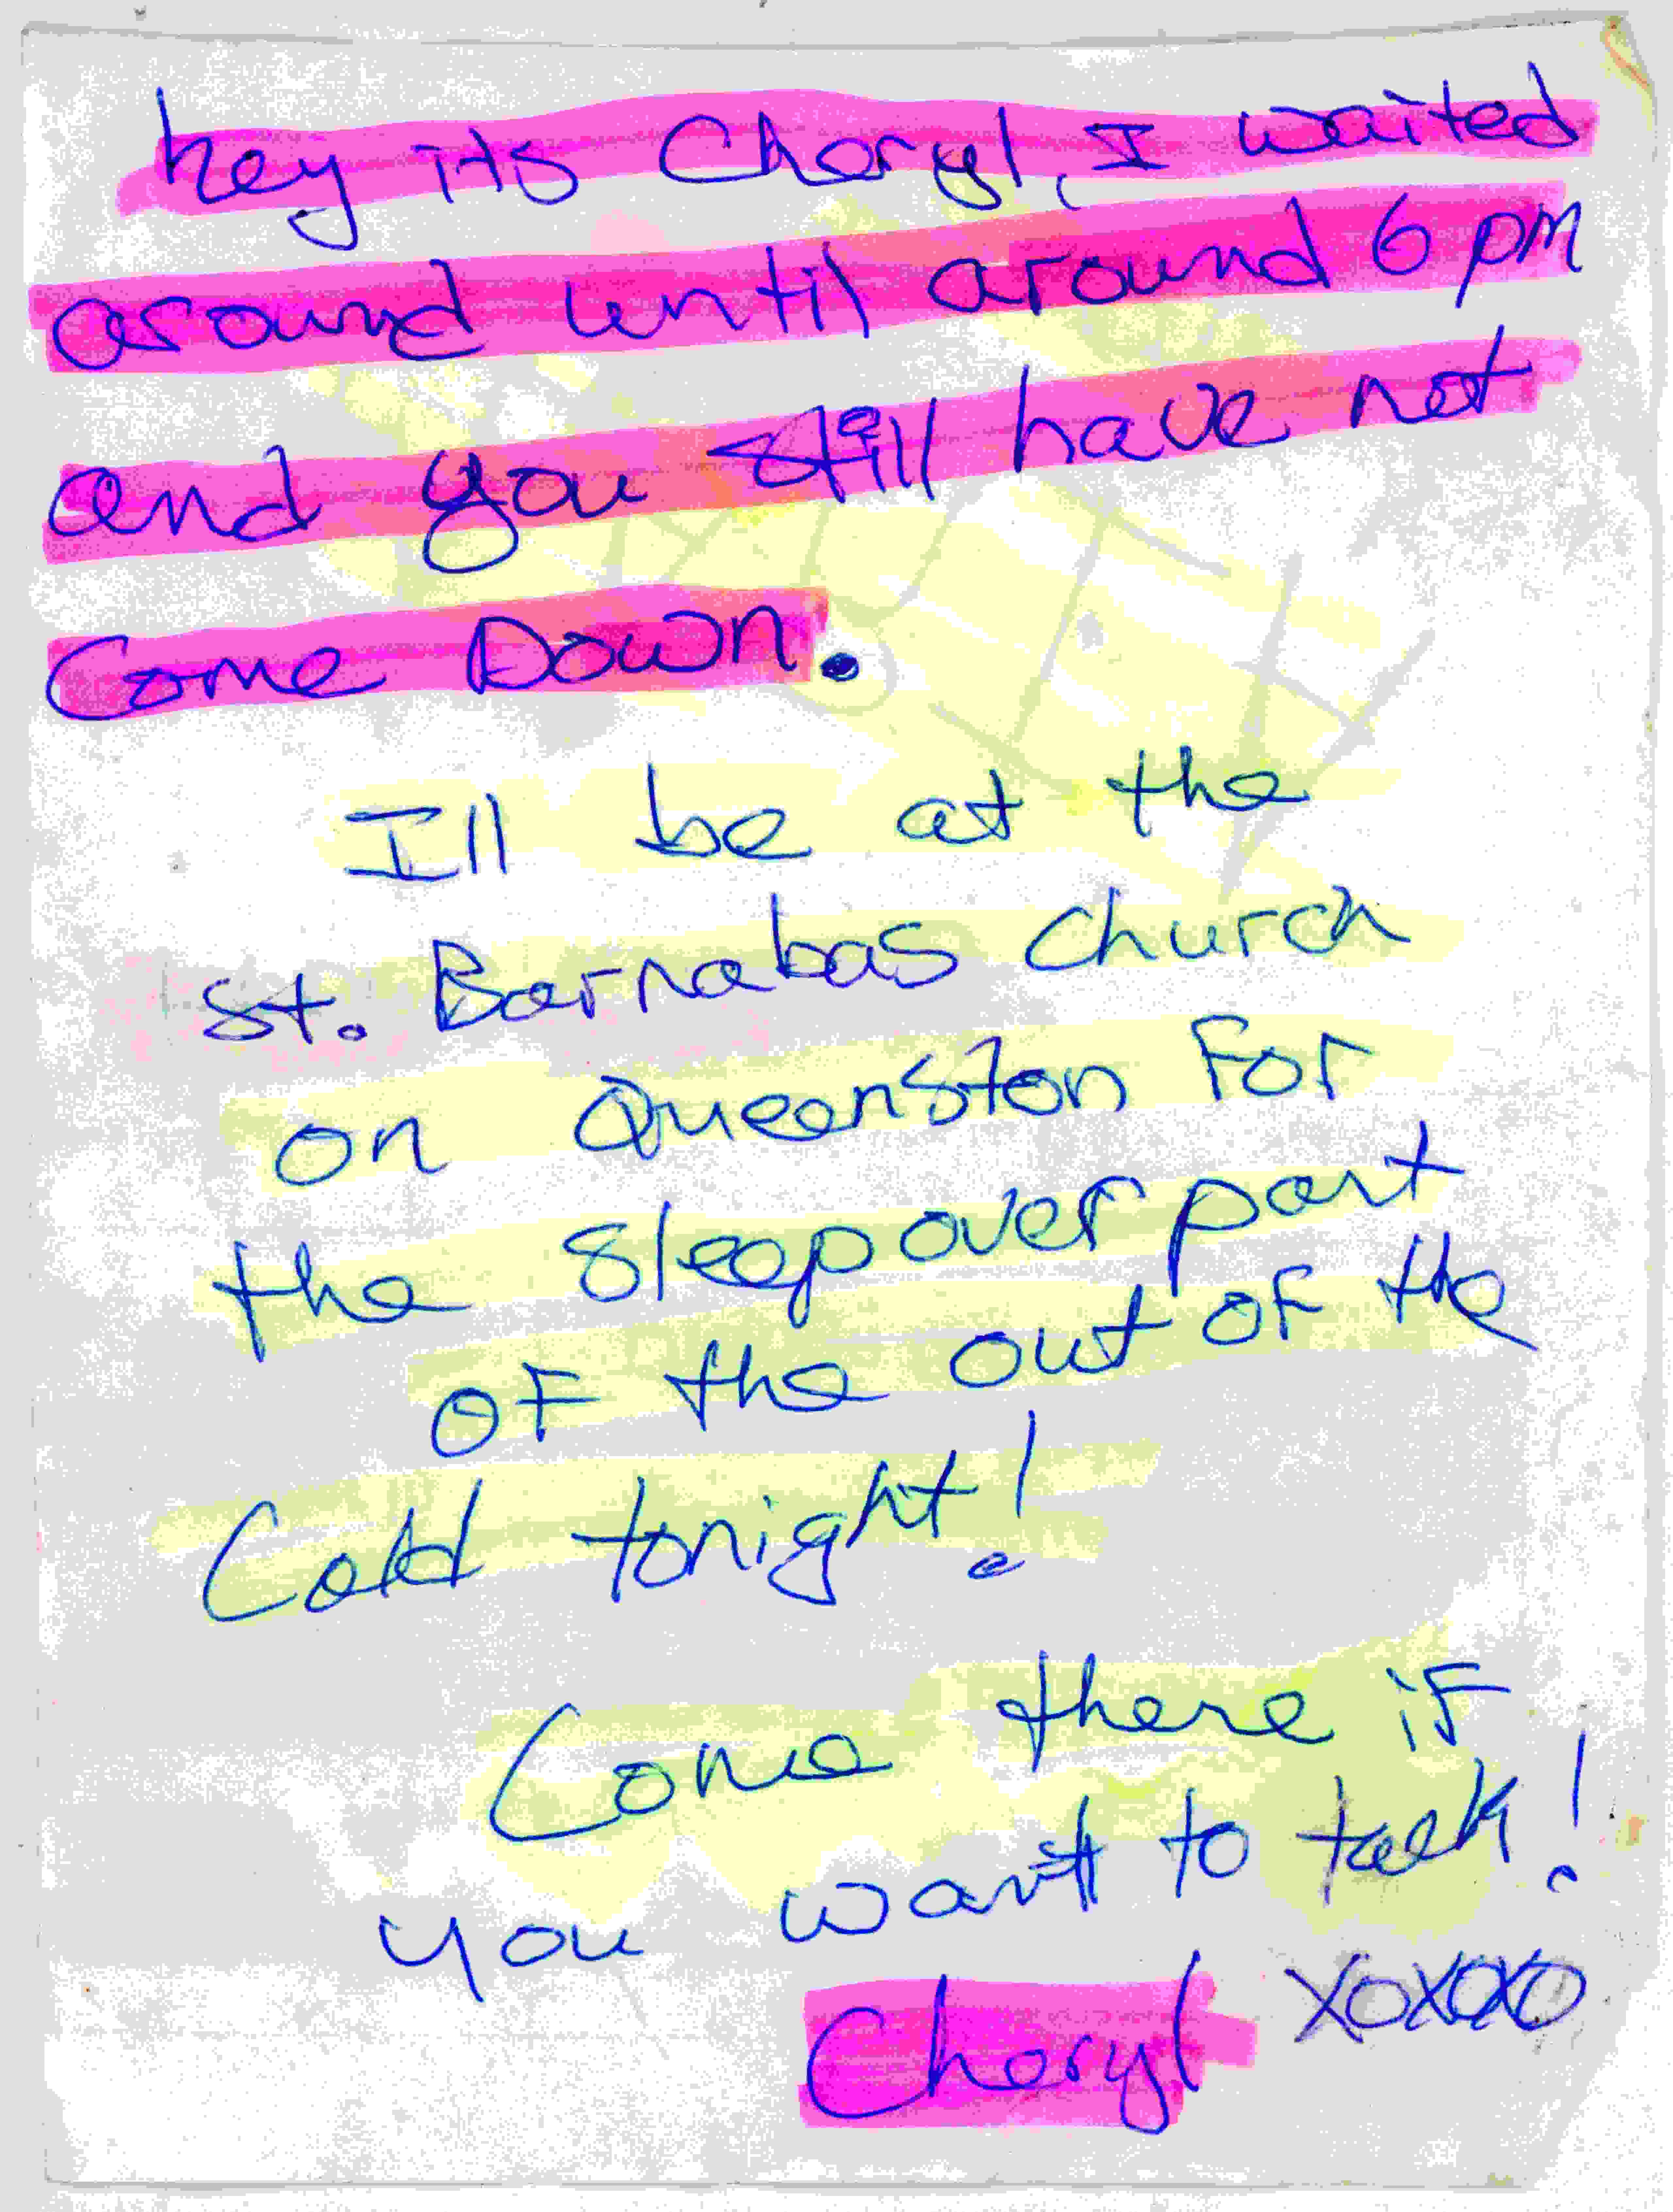 hey its Cheryl, I waited
around until around 6 pm
and you still have not
Come Down.
I'll be at the
St. Barnabas church
on Queenston For
the sleepover part
of the out of the
Cold tonight!
Come there if
you want to talk!
Cheryl xoxoxo